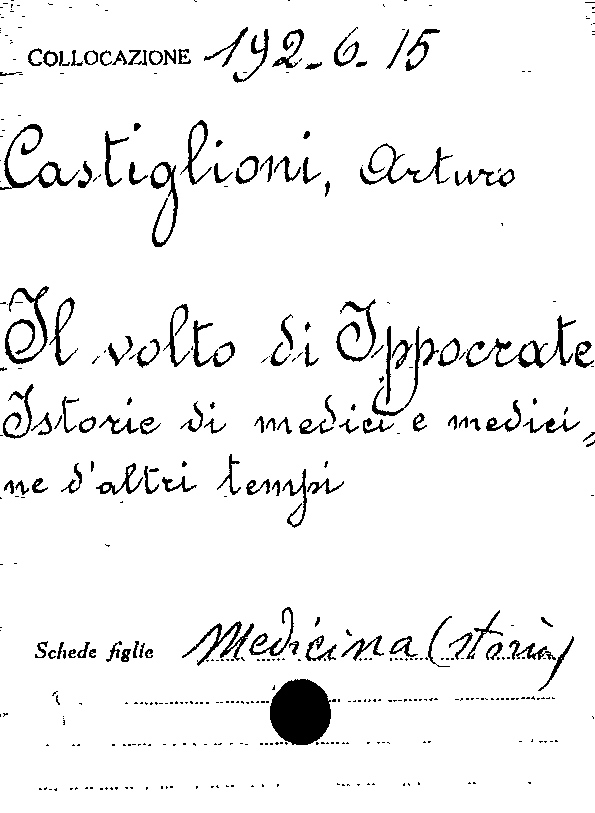 COLLOCAZIONE 192-6-15
Castiglioni, Arturo
Il volto di Ippocrate
Istorie di medici e medici=
ne d'altri tempi
Schede figlie Medicina (storia)